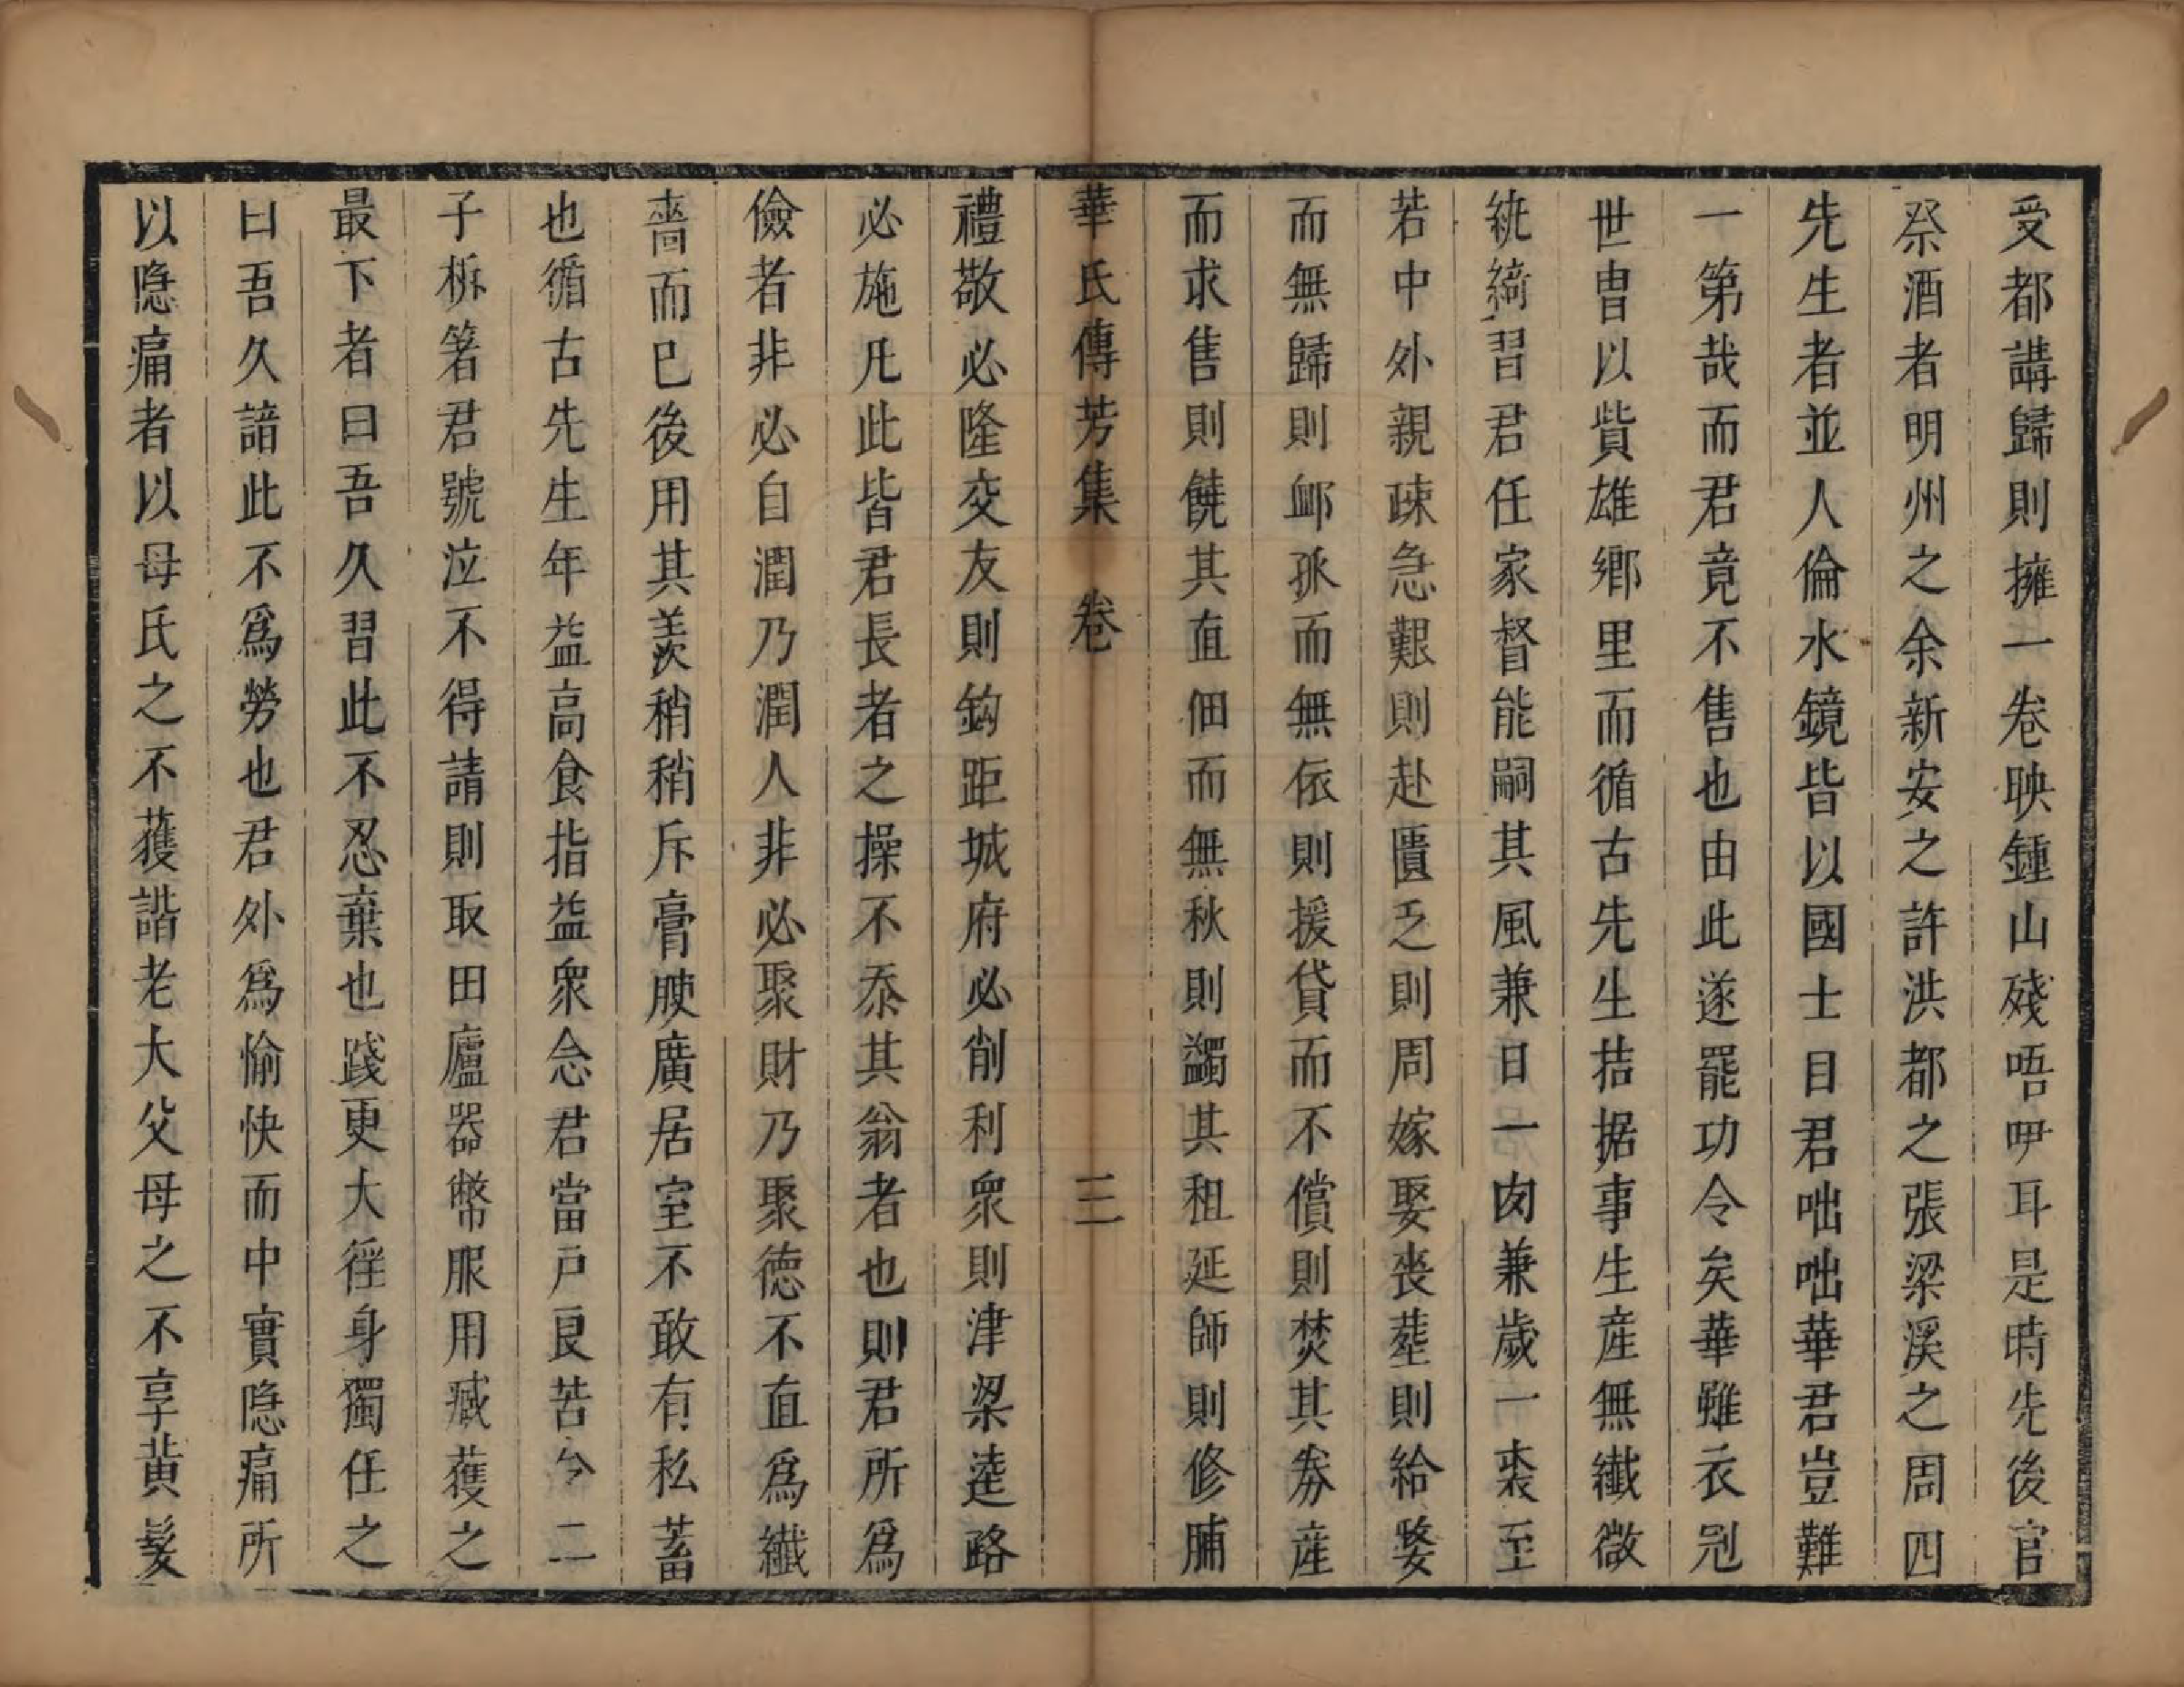 受都講歸則擁一卷映鍾山殘唔吚耳是時先後官
祭酒者明州之余新安之許洪都之張梁溪之周四
先生者並人倫水鏡皆以國士目君咄咄華君豈難
一第哉而君竟不售也由此遂罷功令矣華雖衣冠
世冑以貲雄鄉里而循古先生拮据事生産無纖微
紈綺習君任家督能嗣其風兼日一肉兼歲一裘至
若中外親疎急艱則赴匱乏則周嫁娶喪塟則給婺
而無歸則䘏孤而無依則援貸而不償則焚其劵産
而求售則饒其直佃而無秋則蠲其租延師則修脯
華氏傳芳集　卷　三
禮敬必隆交友則鈎距城府必削利衆則津梁逵路
必施凡此皆君長者之操不忝其翁者也則君所爲
儉者非必自潤乃潤人非必聚財乃聚德不直爲纖
嗇而已後用其羨稍稍斥膏腴廣居室不敢有私蓄
也循古先生年益高食指益衆念君當戸良苦令二
子柝箸君號泣不得請則取田廬器幣服用臧獲之
最下者曰吾久習此不忍棄也踐更大徭身獨任之
曰吾久諳此不爲勞也君外爲愉快而中實隱痛所
以隱痛者以母氏之不獲諧老大父母之不享黄髮